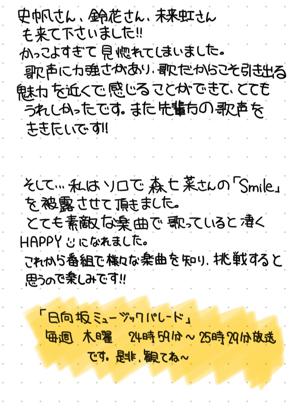 史帆さん、鈴花さん、未来虹さん
も来て下さいました!!
かっこよすぎて見惚れてしまいました。
歌声に力強さがあり、歌だからこそ引き出る
魅力を近くで感じることができて、とても
うれしかったです。また先輩方の歌声を
ききたいです!!
そして…私はソロで森七菜さんの「Smile」
を披露させて頂きました。
とても素敵な楽曲で歌っていると凄く
HAPPYになれました。
これから番組で様々な楽曲を知り、挑戦すると
思うので楽しみです!!
「日向坂ミュージックパレード」
毎週 木曜 24時59分〜25時29分放送
です。是非、観てね〜